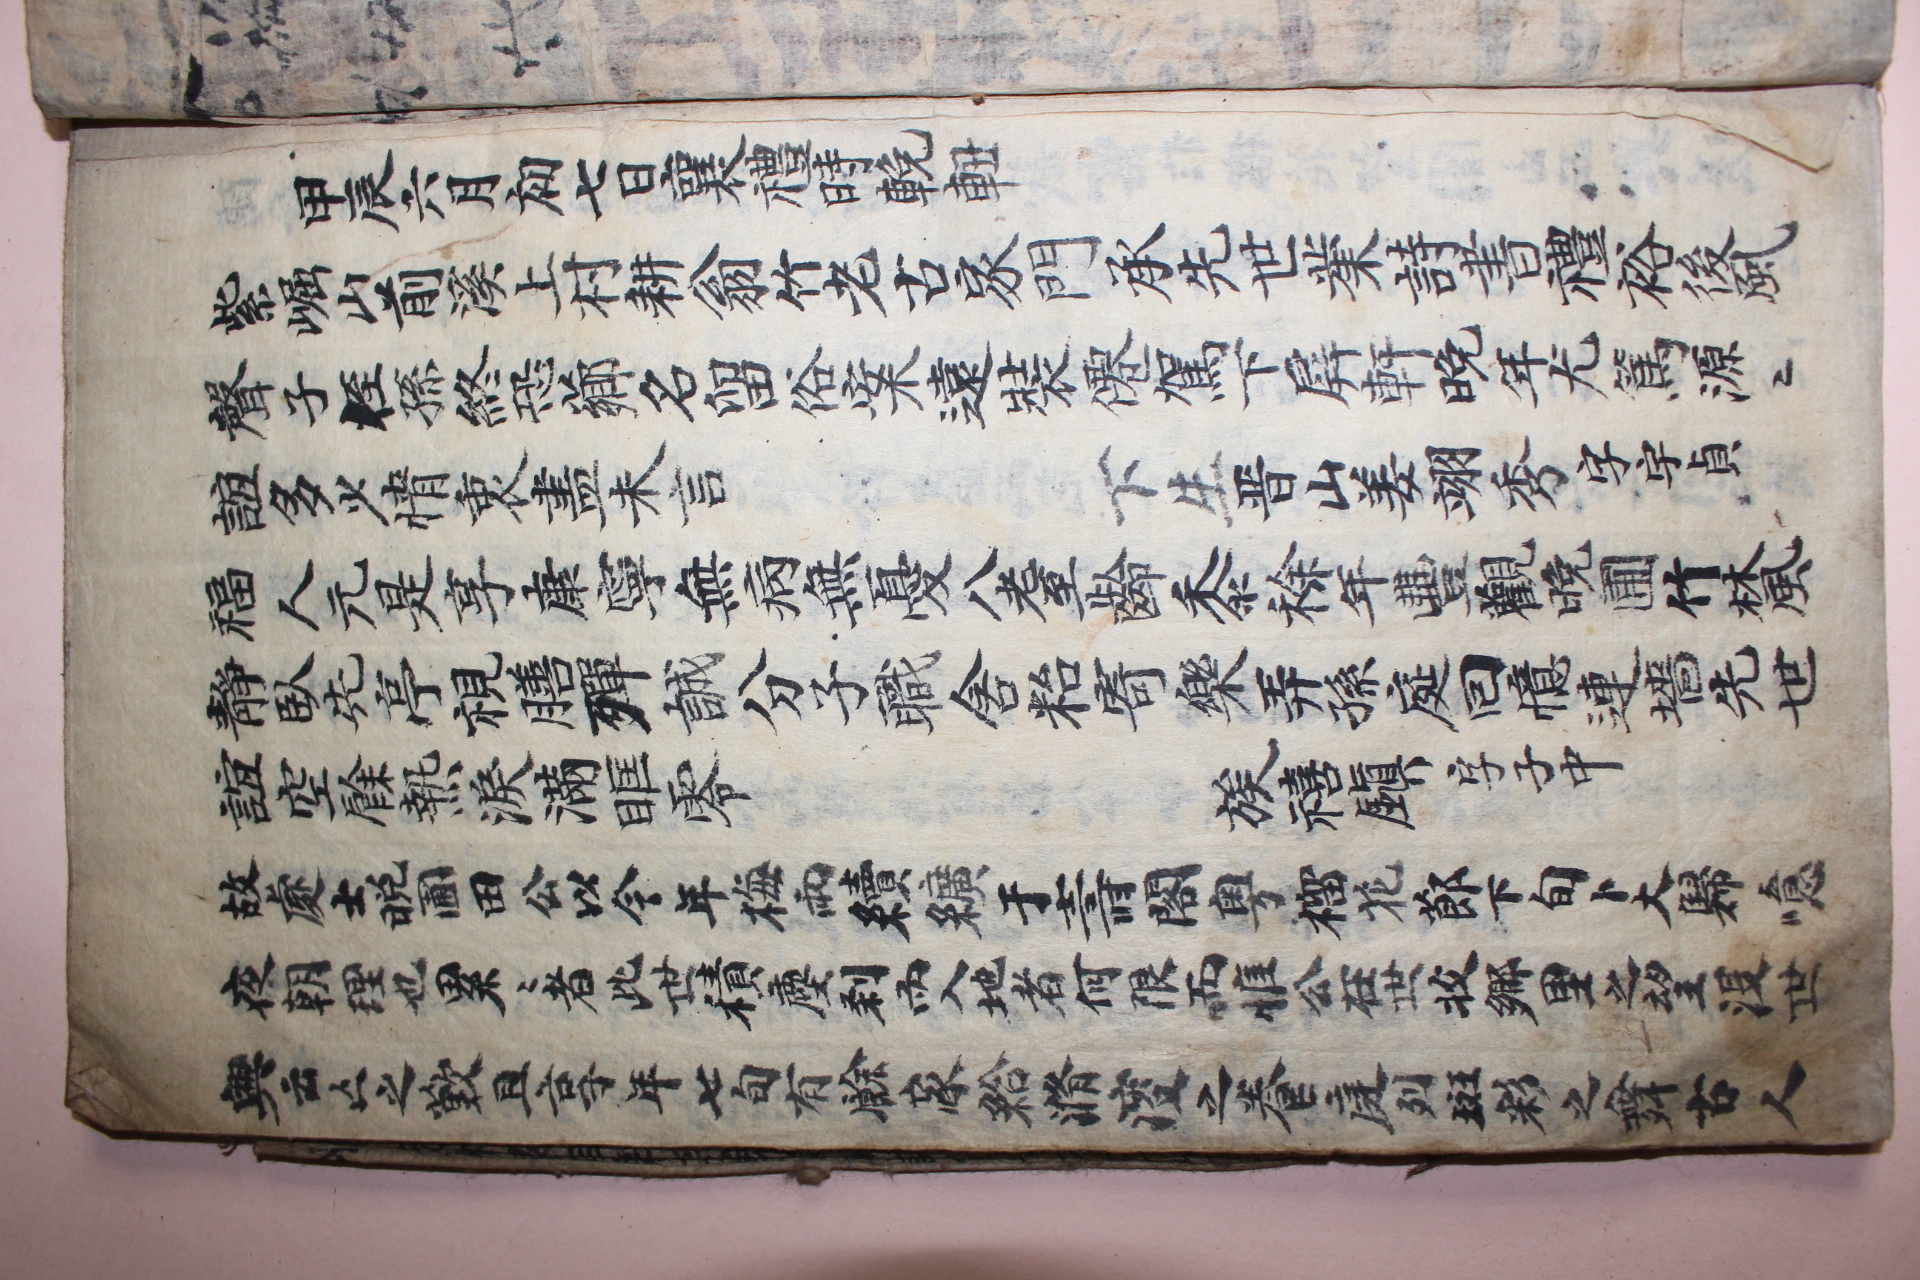 甲辰六月初七日襄禮時輓軸
紫崛山前溪上村耕翁竹老古家門承先世業詩書禮裕後風
聲子侄孫終恐薌名留俗案遠裝僊駕下屛軒晩年尤篤源〻
誼多少情衷盡未言 下生晋山姜翊秀字字貞
福人元是享康寧無病無憂八耋齡黍稌年豊觀晩圃竹林風
靜臥先亭視膳殫誠分子職含飴寄樂弄孫庭回憶連墻先世
誼空餘熱淚滿眶零 族禧鎭字子中
故處士晩圃田公以今年梅雨續纊于壽閣粤榴花節下旬卜大歸噫
夜朝理也累〻者此世積塵刹而入地者何限而惟公在世攸鄕里之望沒世
興云亡之歎且享年七旬有餘家給滫瀡之養庭列斑彩之舞古人